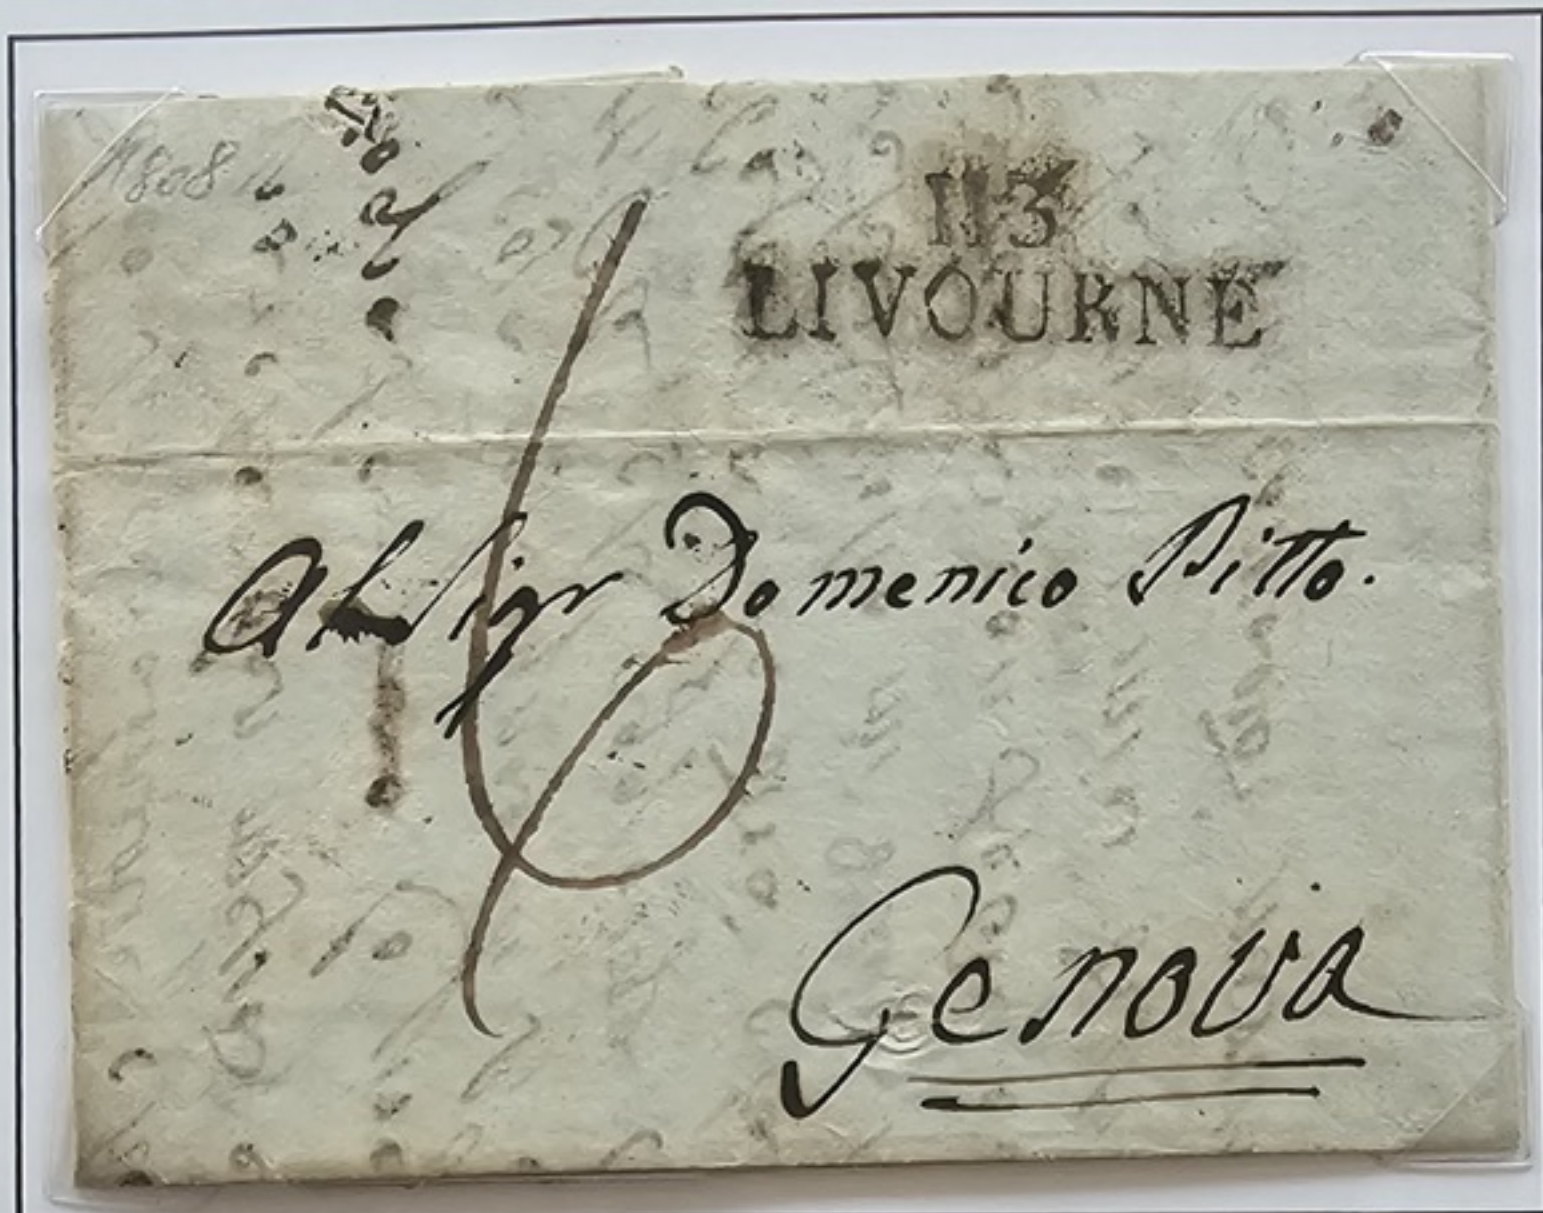 1808
113
LIVOURNE
6
Al Sigr Domenico Pitto.
Genova